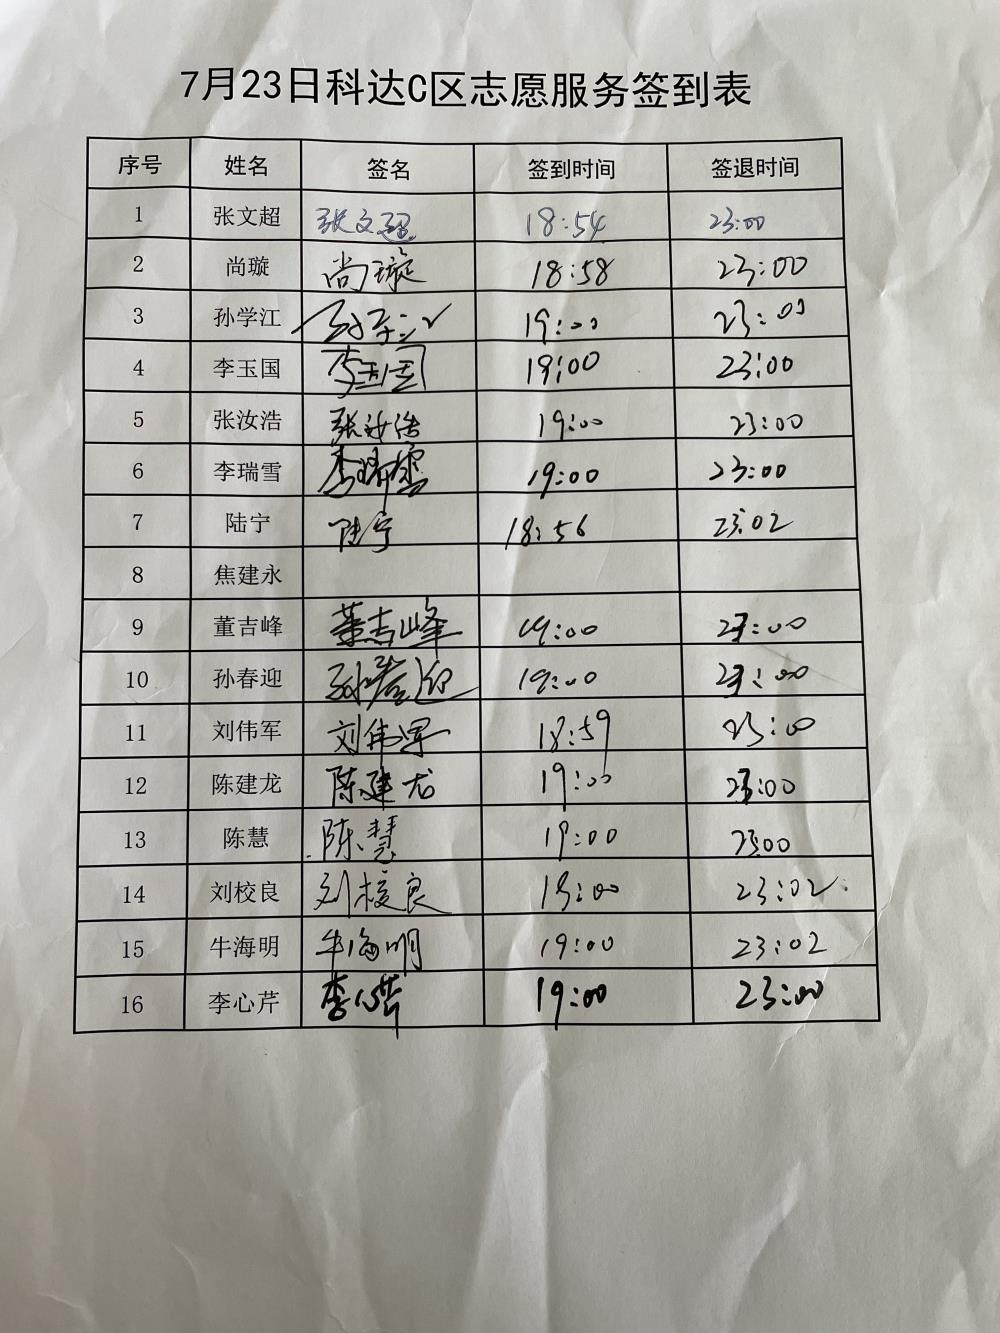 7月23日科达C区志愿服务签到表
序号 姓名 签名 签到时间 签退时间
1 张文超 张文超 18:54 23:00
2 尚璇 尚璇 18:58 23:00
3 孙学江 孙学江 19:00 23:00
4 李玉国 李玉国 19:00 23:00
5 张汝浩 张汝浩 19:00 23:00
6 李瑞雪 李瑞雪 19:00 23:00
7 陆宁 陆宁 18:56 23:02
8 焦建永
9 董吉峰 董吉峰 19:00 23:00
10 孙春迎 孙春迎 19:00 23:00
11 刘伟军 刘伟军 18:59 23:00
12 陈建龙 陈建龙 19:00 23:00
13 陈慧 陈慧 19:00 23:00
14 刘校良 刘校良 19:00 23:02
15 牛海明 牛海明 19:00 23:02
16 李心芹 李心芹 19:00 23:00